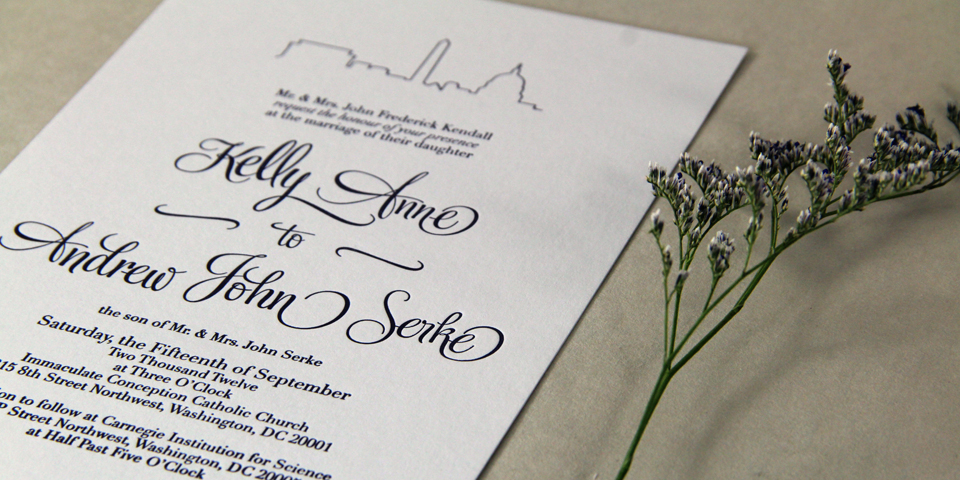 Mr. & Mrs. John Frederick Kendall
request the honour of your presence
at the marriage of their daughter
Kelly Anne
to
Andrew John Serke
the son of Mr. & Mrs. John Serke
Saturday, the Fifteenth of September
Two Thousand Twelve
at Three O'Clock
Immaculate Conception Catholic Church
8th Street Northwest, Washington, DC 20001
to follow at Carnegie Institution for Science
Street Northwest, Washington, DC
at Half Past Five O'Clock